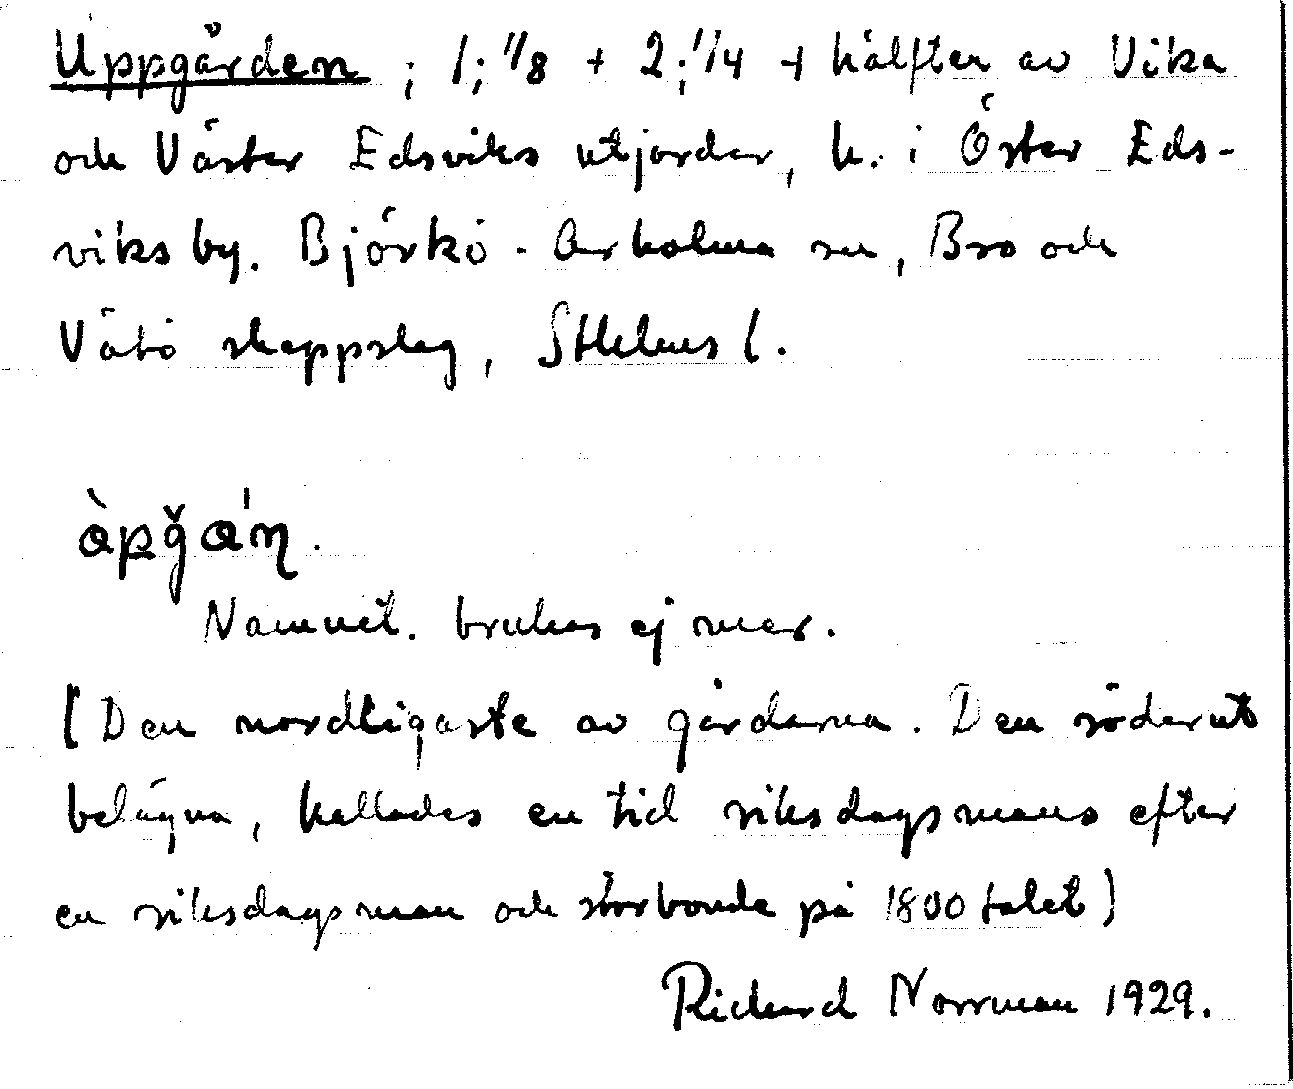 Uppgården ; 1; 1/8 + 2; 1/4 + hälften av Vika
och Väster Edsviks utjordar, h. i Öster Eds-
viks by. Björkö - Arholma sn, Bro och
Vätö skeppslag, Sthlms l.
àpğɑ'ɳ.
Namnet. brukas ej mer.
(Den nordligaste av gårdarna. Den söderut
belägna, kallades en tid riksdagsmans efter
en riksdagsman och storbonde på 1800 talet)
Richard Norrman 1929.